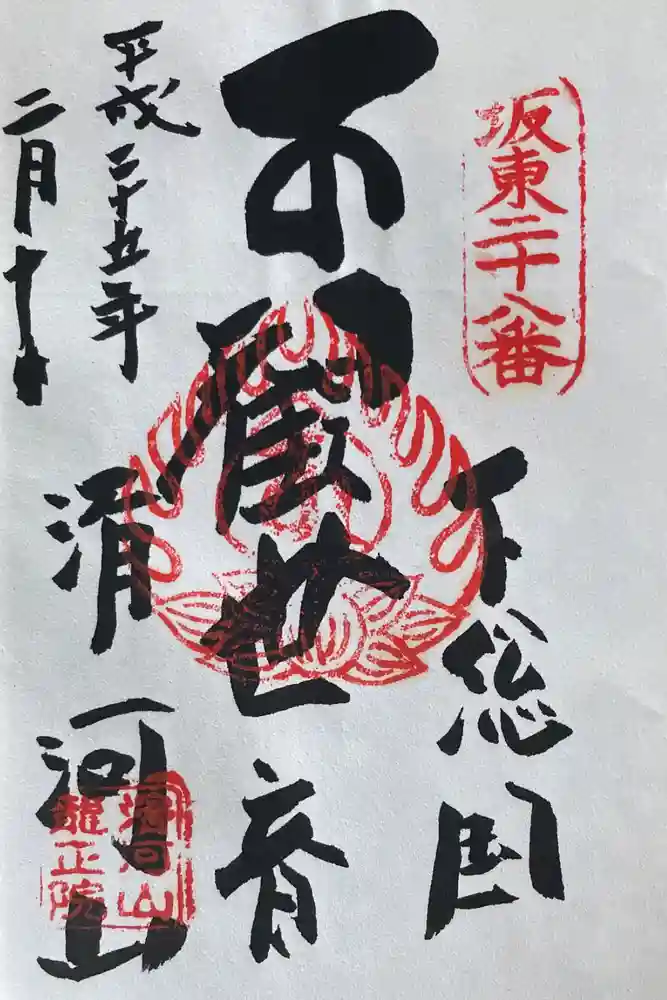 坂東二十八番
下総国
観世音
滑河山
滑河山
龍正院
平成二十五年
二月十日